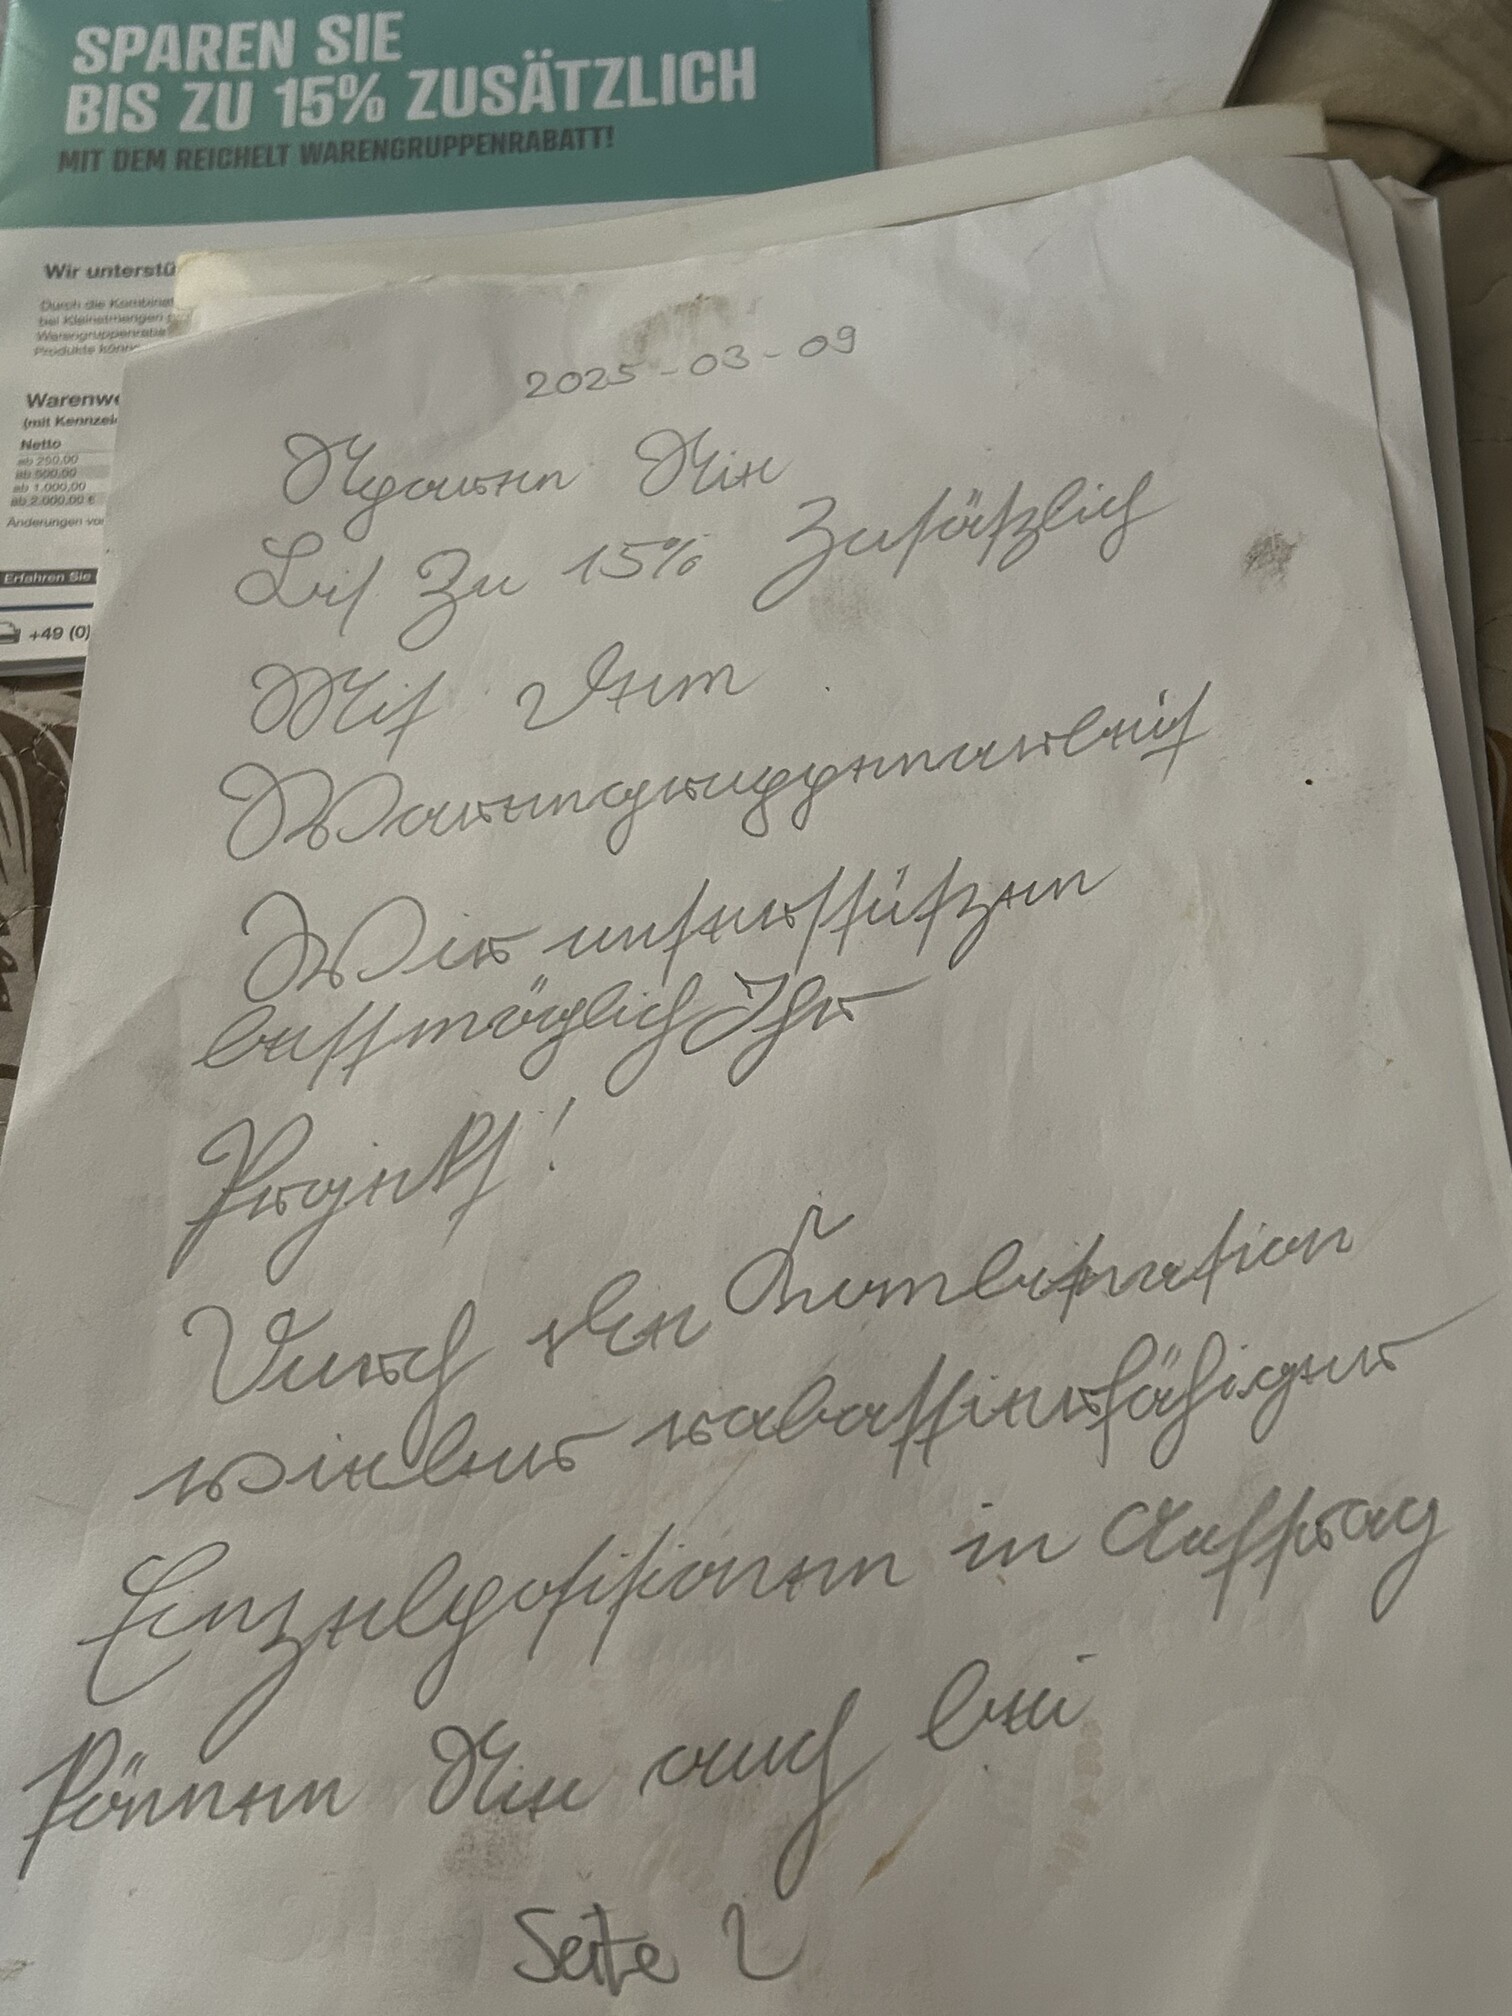 SPAREN SIE
BIS ZU 15% ZUSÄTZLICH
MIT DEM REICHELT WARENGRUPPENRABATT!
Wir unterstü
Durch die Kombinat
bei Kleinstmengen
Warengruppenraba
Produkte könn
Warenwe
(mit Kennzei
Netto
ab 250,00
ab 500,00
ab 1.000,00
ab 2.000,00 €
Änderungen vor
Erfahren Sie
+49 (0)
2025-03-09
Sparen Sie
Bis Zu 15% Zusätzlich
Mit Dem
Warengruppen
Wir unterstützen
bestmöglich Ihr
Projekt!
Durch die Kombination
vieler rabattierfähiger
Einzelpositionen in Auftrag
können Sie auch bei
Seite 2